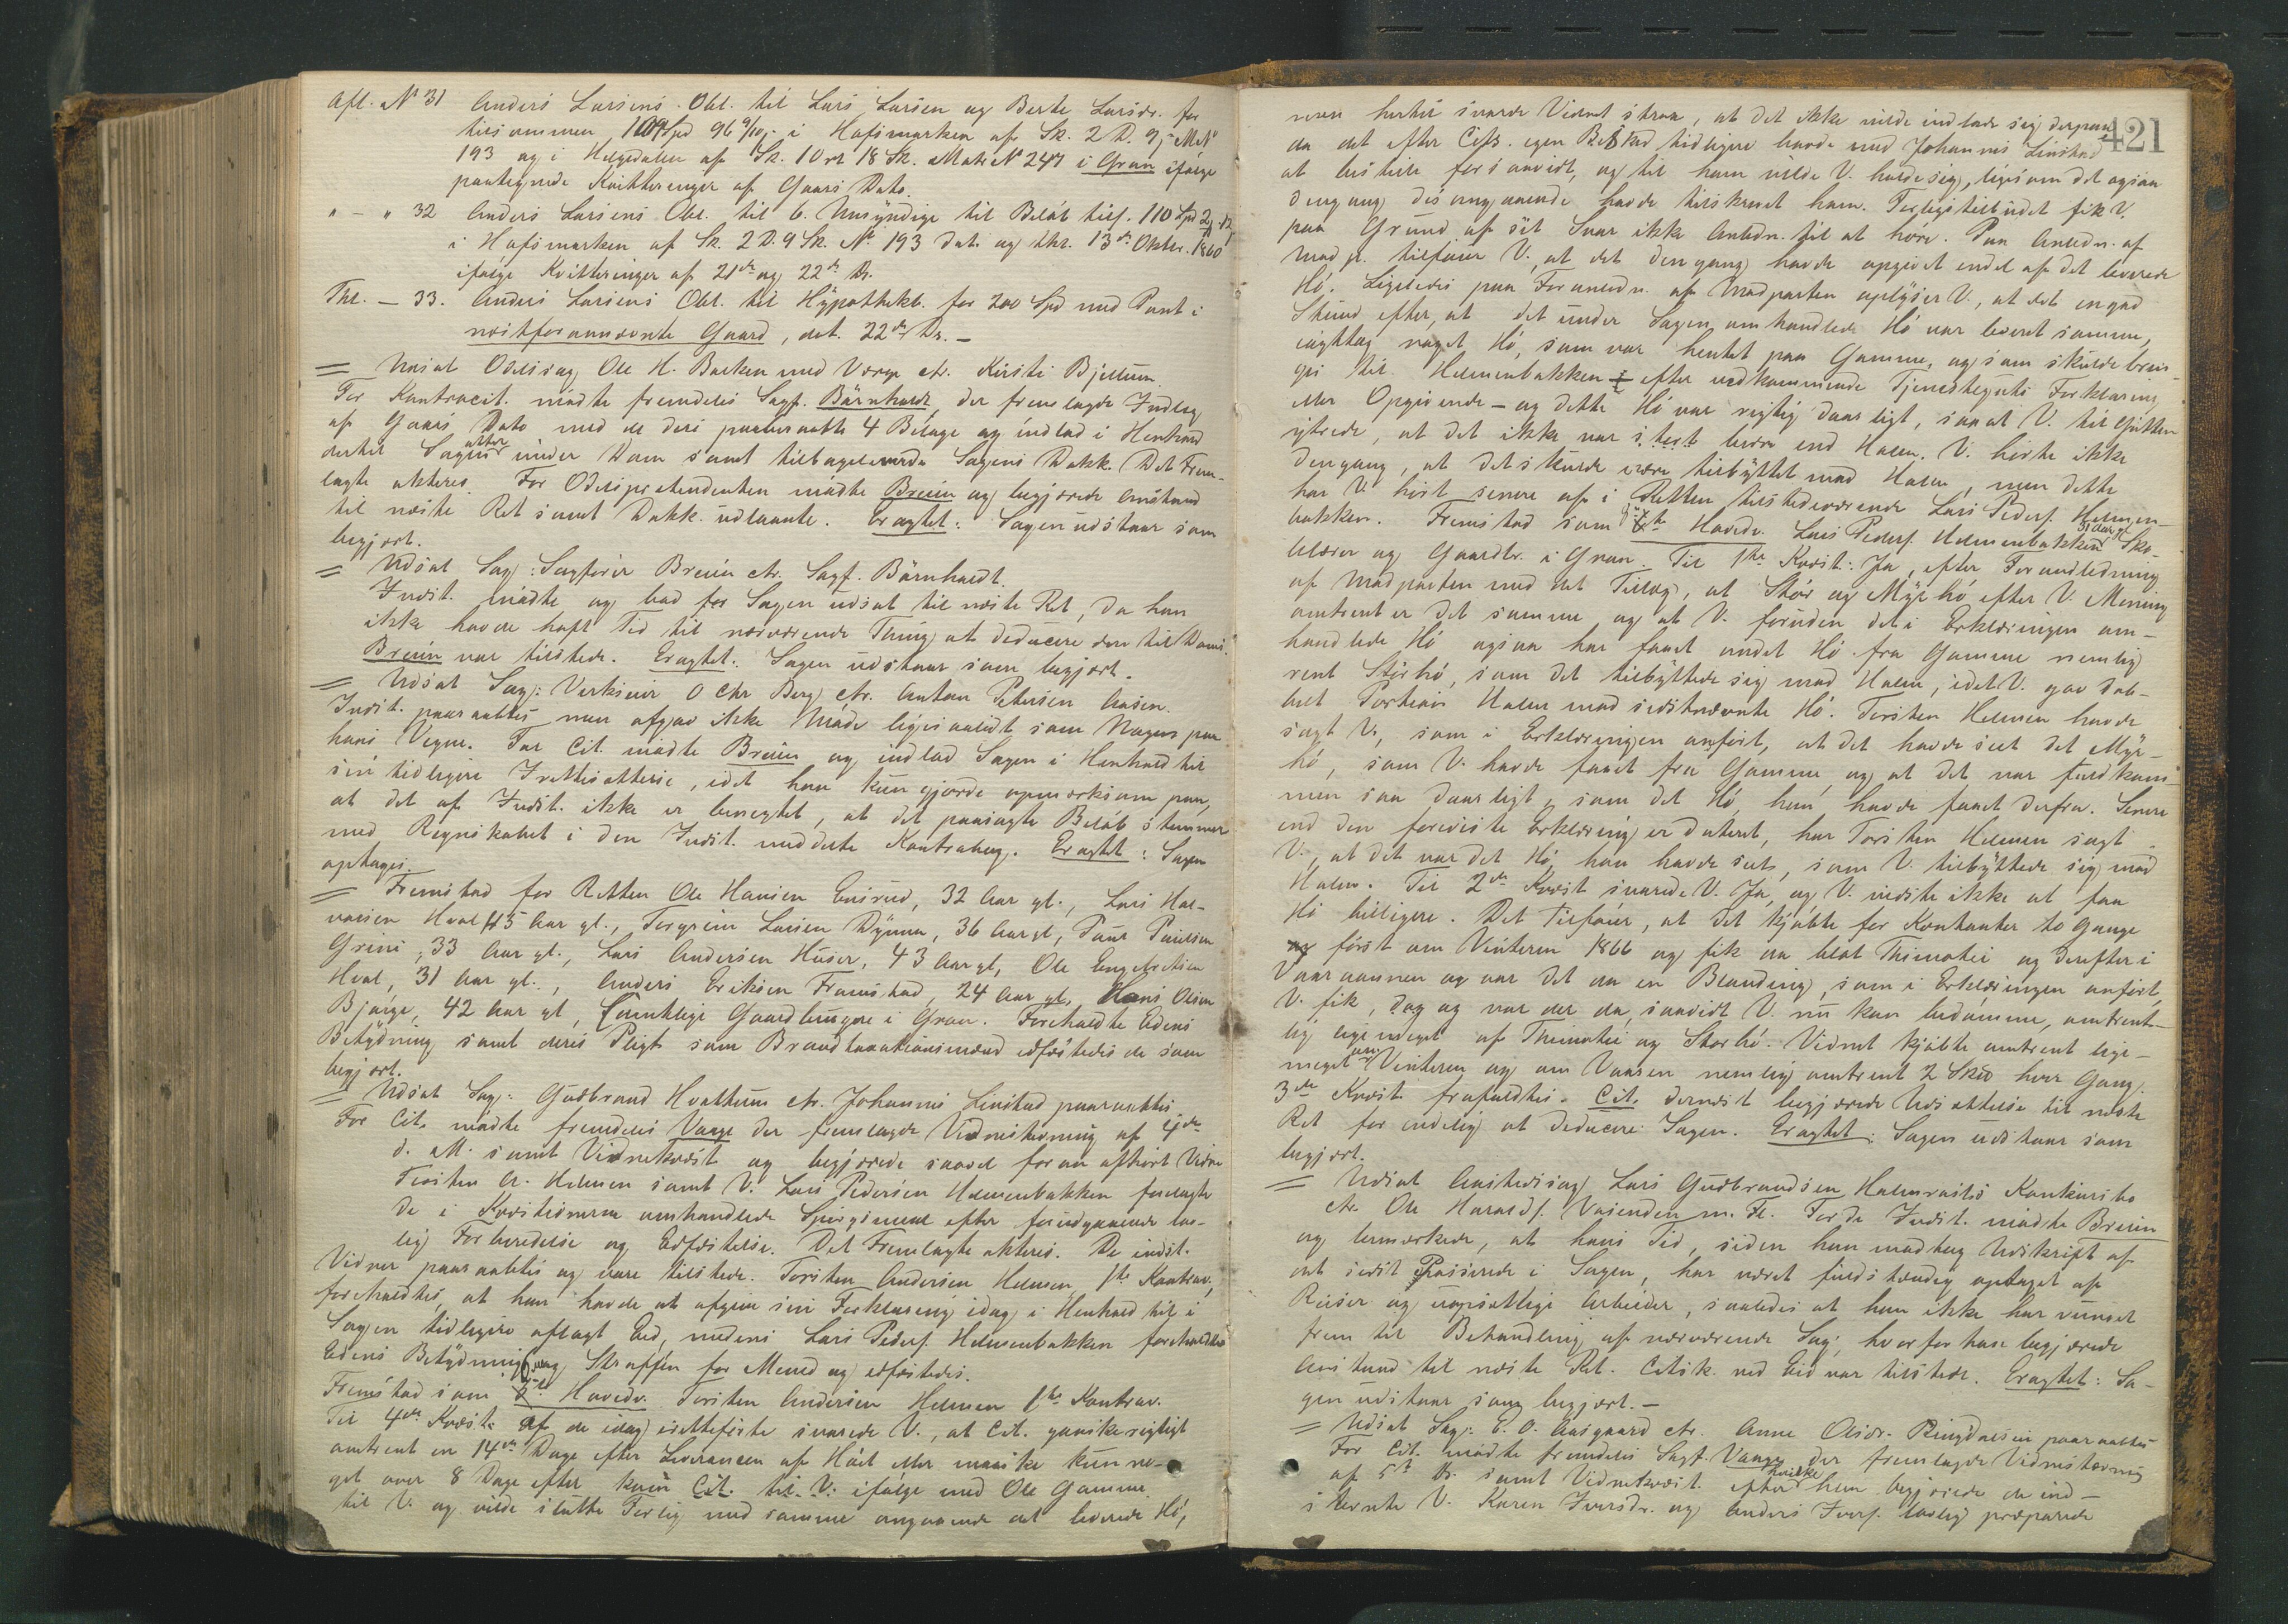 Afl. No 31 Anders Larsens Obl. til Lars Larsen og Berte Larsdr. for
tilsammen 109 Spd 96 i Hofsmarken af Sk. 2 D. 9 Mat
193 og i Helgedalen af Sk. 10 ort 18 Sk. Mat No 247 i Gran ifølge
paategnede Kvitteringer af Gaars Dato.
" - " 32 Anders Larsens Obl. til 6. Umyndige til Beløb tils. 110 Spd
i Hofsmarken af Sk. 2 D. 9 Sk. No 193 dat. og thl. 13de Oktbr. 1860
ifølge Kvitteringer af 21de og 22de Ds.
Thl. - 33. Anders Larsens Obl. til Hypothekb. for 200 Spd med Pant i
næstforannævnte Gaard, dat. 22de Ds. -
= Udsat Odelssag Ole H. Bakken med Værge ctr. Kirsti Bjellum.
For Kontracit. mødte fremdeles Sagf. Bärnholdt, der fremlagde Indlæg
af Gaars Dato med de deri paaberaabte 4 Bilage og indlod i Henhold
dertil Sagen atter under Dom samt tilbageleverede Sagens Dokk. Det Frem-
lagte akteres. For Odelsprætendenten mødte Breien og begjærede Anstand
til næste Ret samt Dokk. udlaante. Eragtet: Sagen udstaar som
begjært.
= Udsat Sag: Sagfører Breien ctr. Sagf. Bärnholdt.
Indst. mødte og bad for Sagen udsat til næste Ret, da han
ikke havde haft Tid til nærværende Thing at deducere den til Doms.
Breien var tilstede. Eragtet: Sagen udstaar som begjært.
= Udsat Sag: Verkseier O Chr Berg ctr. Anton Petersen Aasen.
Indst. paaraabtes men afgav ikke Møde ligesaalidt som Nogen paa
hans Vegne. For Cit. mødte Breien og indlod Sagen i Henhold til
sin tidligere Irettesættelse, idet han kun gjorde opmærksom paa,
at det af Indst. ikke er benegtet, at det paasagte Beløb stemmer
med Regnskabet i den Indst. meddelte Kontrabog. Eragtet: Sagen
optages.
= Fremstod for Retten Ole Hansen Ensrud, 32 Aar gl., Lars Hal-
vorsen Hval 45 Aar gl., Torgrim Larsen Dynna, 36 Aar gl, Paul Paulsen
Grini, 33 Aar gl., Lars Andersen Huser, 43 Aar gl, Ole Engebretsen
Hval, 31 Aar gl., Anders Eriksen Framstad, 24 Aar gl, Hans Olsen
Bjørge, 42 Aar gl, samtlige Gaardbrugere i Gran. Foreholdte Edens
Betydning samt deres Pligt som Brandtaxationsmænd edfæstedes de som
begjært.
= Udsat Sag: Gudbrand Hvattum ctr. Johannes Linstad paaraabtes
For Cit. mødte fremdeles Vange der fremlagde Vidnestævning af 4de
d. M. samt Vidnekvæst og begjærede saavel foran afhørt Vidne
Torsten A. Helmen samt V. Lars Pedersen Helmenbakken forelagte
de i Kvæstionerne omhandlede Spørgsmaal efter forudgaaende lov-
lig Forberedelse og Edfæstelse. Det Fremlagte akteres. De indst.
Vidner paaraabtes og vare tilstede. Torsten Andersen Helmen, 1ste Kontrav.
foreholdtes, at han havde at afgive sin Forklaring idag i Henhold til i
Sagen tidligere aflagt Eed, medens Lars Peders. Helmenbakken foreholdtes
Edens Betydning og Straffen for Mened og edfæstedes.
Fremstod som Hovedv. Torsten Andersen Helmen 1ste Kontrav.
Til 4de Kvæst. af de idag irettelagte svarede V., at Cit. ganske rigtigt
omtrent en 14de Dage efter Leverancen af Høet eller maaske kun no-
get over 8 Dage efter kom Cit. til V. ifølge med Ole Gamme
til V. og vilde slutte Forlig med samme angaaende det leverede Hø,
421
men hertil svarede Vidnet straa, at det ikke vilde indlade sig derpaa
da det efter Cits. egen tidligere havde med Johannes Linstad
at bestille forsaavidt, og til ham vilde V. holde sig, ligesom det ogsaa
dengang desangaaende havde tilskrevet ham. Forligstilbudet fik V.
paa Grund af sit Svar ikke Anledn. til at høre. Paa Anledn. af
Modp. tilføier V., at det dengang havde opgivet endel af det leverede
Hø. Ligeledes paa Foranledn. af Modparten oplyser V., at det engad
Stund efter, at det under Sagen omhandlede Hø var leveret samme,
iagttog noget Hø, som var hentet paa Gamme, og som skulde brin-
ges til Helmenbakken efter vedkommende Tjenesteguts Forklaring
eller Opgivende - og dette Hø var rigtig daarligt, saa at V. til Gutten
ytrede, at det ikke var stort bedre end Halm. V. hørte ikke
dengang, at det skulde være tilbyttet mod Halm, men dette
har V. hørt senere af i Retten tilstedeværende Lars Peders. Helmen-
bakken. Fremstod som Hovedv. Lars Peders. Helmenbakken Sko-
lelærer og Gaardbr. i Gran. Til 1ste Kvæst: Ja, efter Foranledning
af Modparten med det Tillæg, at Stør og Myrhø efter V. Mening
omtrent er det samme og at V. foruden det i Erklæringen om-
handlede Hø ogsaa har faaet andet Hø fra Gamme nemlig
rent Størhø, som det tilbyttede sig mod Halm, idet V. gav dob-
belt Portion Halm mod sidstnævnte Hø. Torsten Helmen havde
sagt V., som i Erklæringen anført, at det havde seet det Myr-
hø, som V. havde faaet fra Gamme og at det var fuldkom-
men saa daarligt, som det Hø han havde faaet derfra. Senere
end den foreviste Erklæring er dateret, har Torsten Helmen sagt
V., at det var det Hø, han havde seet, som V. tilbyttede sig mod
Halm. Til 2de Kvæst svarede V. Ja, og V. vidste ikke at faa
Hø billigere. Det tilføier, at det kjøbte for Kontanter to Gange
først om Vinteren 1866 og fik da blot Thimotei og derefter i
Vaaraannen og var det da en Blanding, som i Erklæringen anført,
V. fik, og var der da, saavidt V. nu kan bedømme, omtrent-
lig ligemeget af Thimotei og Størhø. Vidnet kjøbte omtrent lige-
meget om Vinteren og om Vaaren nemlig omtrent 2 Skd hver Gang.
3die Kvæst frafaldtes. Cit. dernæst begjærede Udsættelse til næste
Ret for endelig at deducere Sagen. Eragtet: Sagen udstaar som
begjært.
= Udsat Gjæstebudssag Lars Gudbrandsen Halmrasts Konkursbo
ctr. Ole Haralds. Vasenden m. Fl. For de Indst. mødte Breien
og bemærkede, at hans Tid, siden han modtog Udskrift af
det sidst Passerede i Sagen, har været fuldstændig optaget af
Reiser og uopsættelige Arbeider, saaledes at han ikke har vunnet
frem til Behandling af nærværende Sag, hvorfor han begjærede
Anstand til næste Ret. Citsk. ved Eid var tilstede. Eragtet: Sa-
gen udstaar som begjært. -
= Udsat Sag: E. O. Aasgaard ctr. Anne Olsdr. Ringdalen paaraabtes
For Cit. mødte fremdeles Sagf. Vange der fremlagde Vidnestævning
af 5te Ds. samt Vidnekvæst. efter hvilke han begjærede de ind-
stevnte V. Karen Iversdr. og Anders Ivers. lovlig præparede